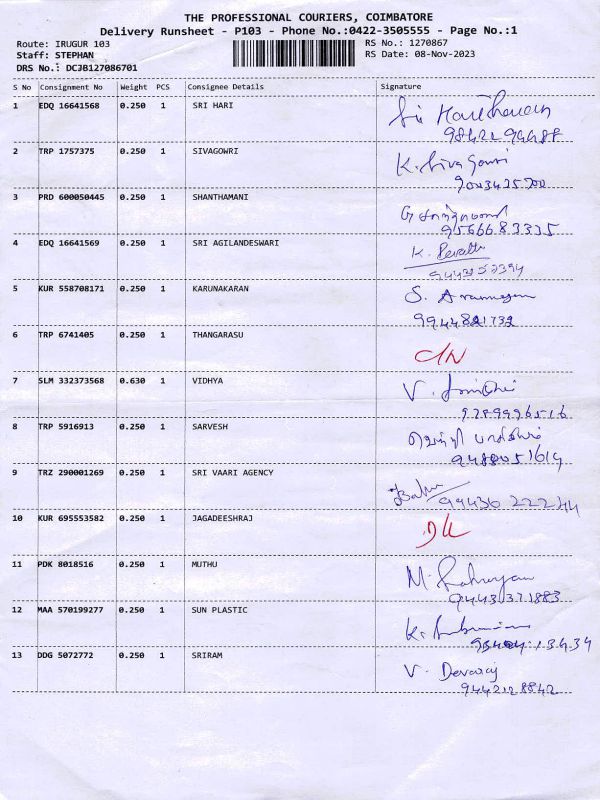 THE PROFESSIONAL COURIERS, COIMBATORE
Delivery Runsheet - P103 - Phone No.:0422-3505555 - Page No.:1
Route: IRUGUR 103 RS No.: 1270867
Staff: STEPHAN RS Date: 08-Nov-2023
DRS No.: DCJB127086701
S No Consignment No Weight PCS Consignee Details Signature
1 EDQ 16641568 0.250 1 SRI HARI
2 TRP 1757375 0.250 1 SIVAGOWRI K. Siva Gowri
3 PRD 600050445 0.250 1 SHANTHAMANI
9566683335
4 EDQ 16641569 0.250 1 SRI AGILANDESWARI K.
5 KUR 558708171 0.250 1 KARUNAKARAN S.
9944821732
6 TRP 6741405 0.250 1 THANGARASU
7 SLM 332373568 0.630 1 VIDHYA V.
8 TRP 5916913 0.250 1 SARVESH
9 TRZ 290001269 0.250 1 SRI VAARI AGENCY Babu
99436 22244
10 KUR 695553582 0.250 1 JAGADEESHRAJ
11 PDK 8018516 0.250 1 MUTHU M.
9443371883
12 MAA 570199277 0.250 1 SUN PLASTIC K.
13 DDG 5072772 0.250 1 SRIRAM V. Devaraj
9442128842